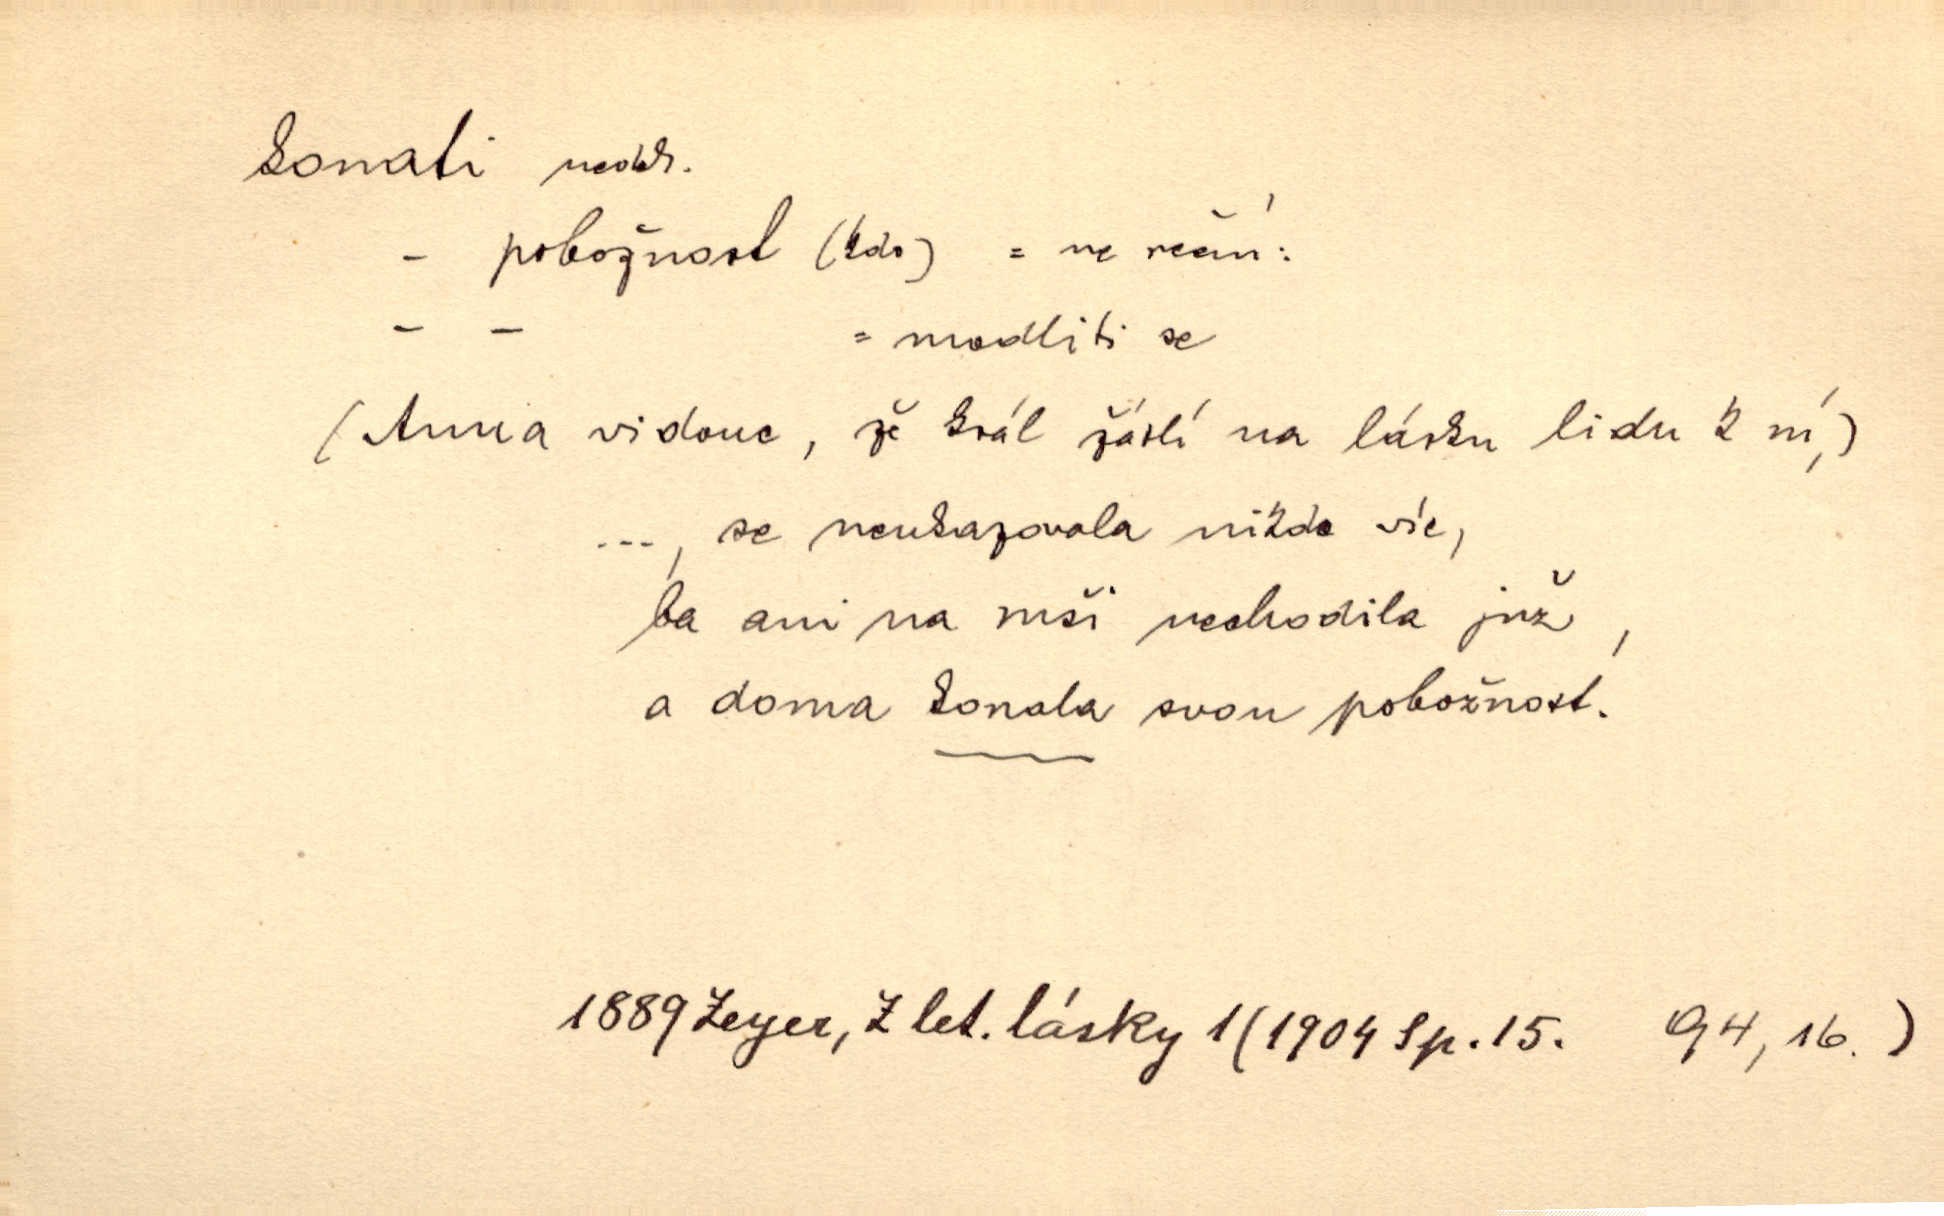 konati nedok.
- pobožnost (kdo) = ve rčení:
- - = modliti se
(Anna vidouc, že král žárlí na lásku lidu k ní,)
..., se neukazovala nikde víc,
ba ani na mši nechodila již,
a doma konala svou pobožnost.
1889 Zeyer, Z let. lásky 1 (1904 Sp. 15. 94, 16.)